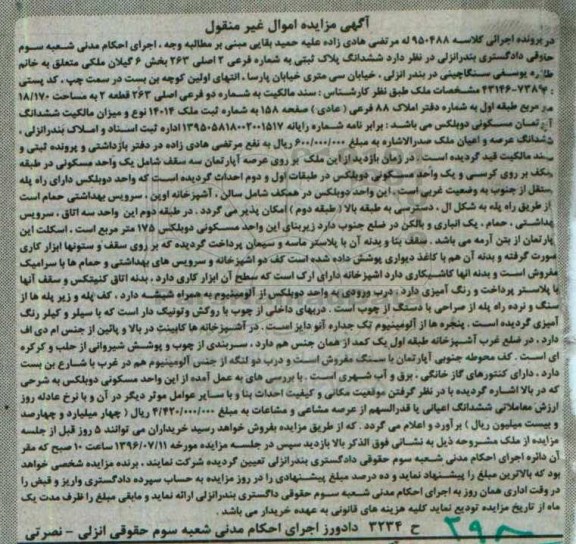 آگهی مزایده اموال غیر منقول
در پرونده اجرائی کلاسه ۹۵۰۴۸۸ له مرتضی هادی زاده علیه حمید بقایی مبنی بر مطالبه وجه ، اجرای احکام مدنی شعبه سوم
حقوقی دادگستری بندرانزلی در نظر دارد ششدانگ پلاک ثبتی به شماره فرعی ۲ اصلی ۲۶۳ بخش ۶ گیلان ملکی متعلق به خانم
یوسفی سنگاچینی در بندر انزلی ، خیابان سی متری خیابان پارسا ، انتهای اولین کوچه بن بست در سمت چپ ، کد پستی
۴۳۱۴۶-۷۳۸۹۳ مشخصات ملک طبق نظر کارشناس : سند مالکیت به شماره دو فرعی اصلی ۲۶۳ قطعه ۲ به مساحت ۱۸/۱۷۰
متر مربع طبقه اول به شماره دفتر املاک ۸۸ فرعی ( عادی ) صفحه ۱۵۸ به شماره ثبت ملک ۱۴۰۱۴ نوع و میزان مالکیت ششدانگ
آپارتمان مسکونی دوبلکس می باشد : برابر نامه شماره رایانه ۱۳۹۵۰۵۸۱۸۰۰۲۰۰۱۵۱۷ اداره ثبت اسناد و املاک بندرانزلی ،
ششدانگ عرصه و اعیان ملک صدرالاشاره به مبلغ ۶۰۰/۰۰۰/۰۰۰ ریال به نفع مرتضی هادی زاده در دفتر بازداشتی و پرونده ثبتی و
سند مالکیت قید گردیده است . در زمان بازدید از این ملک بر روی عرصه آپارتمان سه سقف شامل یک واحد مسکونی در طبقه
همکف بر روی کرسی و یک واحد مسکونی دوبلکس در طبقات اول و دوم احداث گردیده است که واحد دوبلکس دارای راه پله
مستقل از جنوب به وضعیت غربی است . این واحد دوبلکس در همکف شامل سالن ، آشپزخانه اوپن ، سرویس بهداشتی حمام است
از طریق راه پله به شکل ال ، دسترسی به طبقه بالا ( طبقه دوم ) امکان پذیر می گردد . در طبقه دوم این واحد سه اتاق ، سرویس
بهداشتی ، حمام ، یک انباری و بالکن در ضلع جنوب دارد زیربنای این واحد مسکونی دوبلکس ۱۷۵ متر مربع است . اسکلت این
آپارتمان از بتن آرمه می باشد . سقف بنا و بدنه آن با پلاستر ماسه و سیمان پرداخت گردیده که بر روی سقف و ستونها ابزار کاری
صورت گرفته و بدنه آن هم با کاغذ دیواری پوشش داده شده است کف دو آشپزخانه و سرویس های بهداشتی و حمام ها با سرامیک
مفروش است و بدنه آنها کاشیکاری دارد آشپزخانه دارای ارک است که سطح آن ابزار کاری دارد . بدنه اتاق کنیتکس و سقف آنها
با پلاستر پرداخت و رنگ آمیزی دارد . درب ورودی به واحد دوبلکس از آلومینیوم به همراه شیشه دارد . کف پله و زیر پله ها از
سنگ و نرده راه پله از صراحی با دستگ از چوب است . دربهای داخلی از چوب با روکش و تونیک دار است که با سیلر و کیلر رنگ
آمیزی گردیده است . پنجره ها از آلومینیوم تک جداره آنودایز است . در آشپزخانه ها کابینت در بالا و پائین از جنس ام دی اف
دارد . در ضلع غرب آشپزخانه طبقه اول یک کمد از همان جنس هم دارد . سربندی از چوب و پوشش شیروانی از حلب و کرکره
ای است . کف محوطه جنوبی آپارتمان با سنگ مفروش است و درب دو لنگه از جنس آلومینیوم هم در غرب با شارع بن بست
دارد . دارای کنتورهای گاز خانگی ، برق و آب شهری است . با بررسی های به عمل آمده از این واحد مسکونی دوبلکس به شرحی
که در بالا اشاره گردید با در نظر گرفتن موقعیت مکانی و کیفیت احداث بنا و با سایر عوامل موثر دیگر در آن و با نرخ عادله روز
ارزش معاملاتی ششدانگ اعیانی با قدرالسهم از عرصه مشاعی و مشاعات به مبلغ ۴/۴۲۰/۰۰۰/۰۰۰ ریال ( چهار میلیارد و چهارصد
و بیست میلیون ریال ) برآورد و اعلام می گردد . که از طریق مزایده بفروش خواهد رسید خریداران می توانند ۵ روز قبل از جلسه
مزایده از ملک مشروحه ذیل به نشانی فوق الذکر بالا بازدید سپس در جلسه مزایده مورخه ۱۳۹۶/۰۷/۱۱ ساعت ۱۰ صبح که مقر
آن دائره اجرای احکام مدنی شعبه سوم حقوقی دادگستری بندرانزلی تعیین گردیده شرکت نمایند ، برنده مزایده شخصی خواهد
بود که بالاترین مبلغ را پیشنهاد نماید و ده درصد مبلغ پیشنهادی را در روز مزایده به حساب سپرده دادگستری واریز و قبض را
در وقت اداری همان روز به اجرای احکام مدنی شعبه سوم حقوقی دادگستری بندرانزلی ارائه نماید و مابقی مبلغ را ظرف مدت یک
ماه از تاریخ مزایده تودیع نماید کلیه هزینه های قانونی به عهده خریدار می باشد .
ح ۳۲۳۴ دادورز اجرای احکام مدنی شعبه سوم حقوقی انزلی - نصرتی